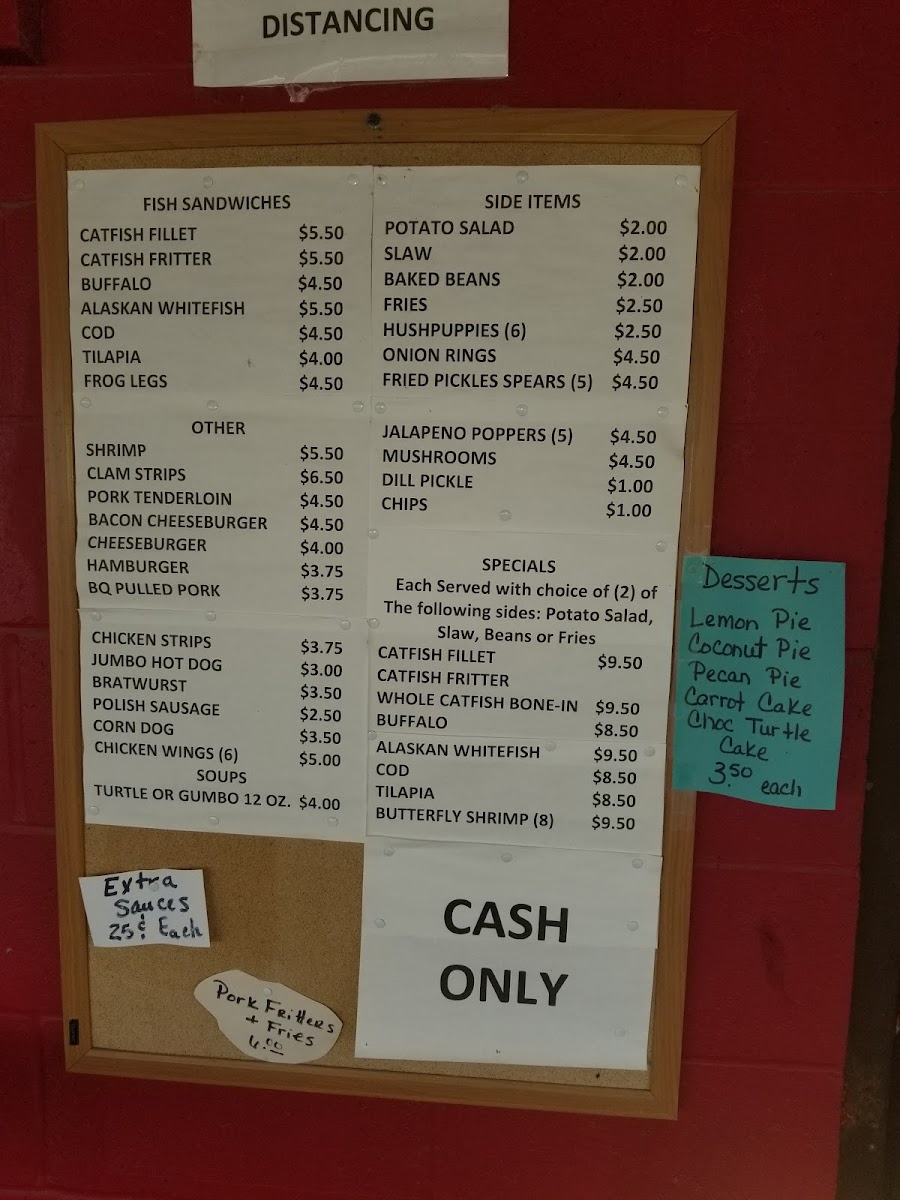 DISTANCING
FISH SANDWICHES
CATFISH FILLET $5.50
CATFISH FRITTER $5.50
BUFFALO $4.50
ALASKAN WHITEFISH $5.50
COD $4.50
TILAPIA $4.00
FROG LEGS $4.50
OTHER
SHRIMP $5.50
CLAM STRIPS $6.50
PORK TENDERLOIN $4.50
BACON CHEESEBURGER $4.50
CHEESEBURGER $4.00
HAMBURGER $3.75
BQ PULLED PORK $3.75
CHICKEN STRIPS $3.75
JUMBO HOT DOG $3.00
BRATWURST $3.50
POLISH SAUSAGE $2.50
CORN DOG $3.50
CHICKEN WINGS (6) $5.00
SOUPS
TURTLE OR GUMBO 12 OZ. $4.00
SIDE ITEMS
POTATO SALAD $2.00
SLAW $2.00
BAKED BEANS $2.00
FRIES $2.50
HUSHPUPPIES (6) $2.50
ONION RINGS $4.50
FRIED PICKLES SPEARS (5) $4.50
JALAPENO POPPERS (5) $4.50
MUSHROOMS $4.50
DILL PICKLE $1.00
CHIPS $1.00
SPECIALS
Each Served with choice of (2) of
The following sides: Potato Salad,
Slaw, Beans or Fries
CATFISH FILLET $9.50
CATFISH FRITTER
WHOLE CATFISH BONE-IN $9.50
BUFFALO $8.50
ALASKAN WHITEFISH $9.50
COD $8.50
TILAPIA $8.50
BUTTERFLY SHRIMP (8) $9.50
CASH
ONLY
Extra
Sauces
25¢ Each
Pork Fritters
+ Fries
6.00
Desserts
Lemon Pie
Coconut Pie
Pecan Pie
Carrot Cake
Choc Turtle
Cake
3.50 each